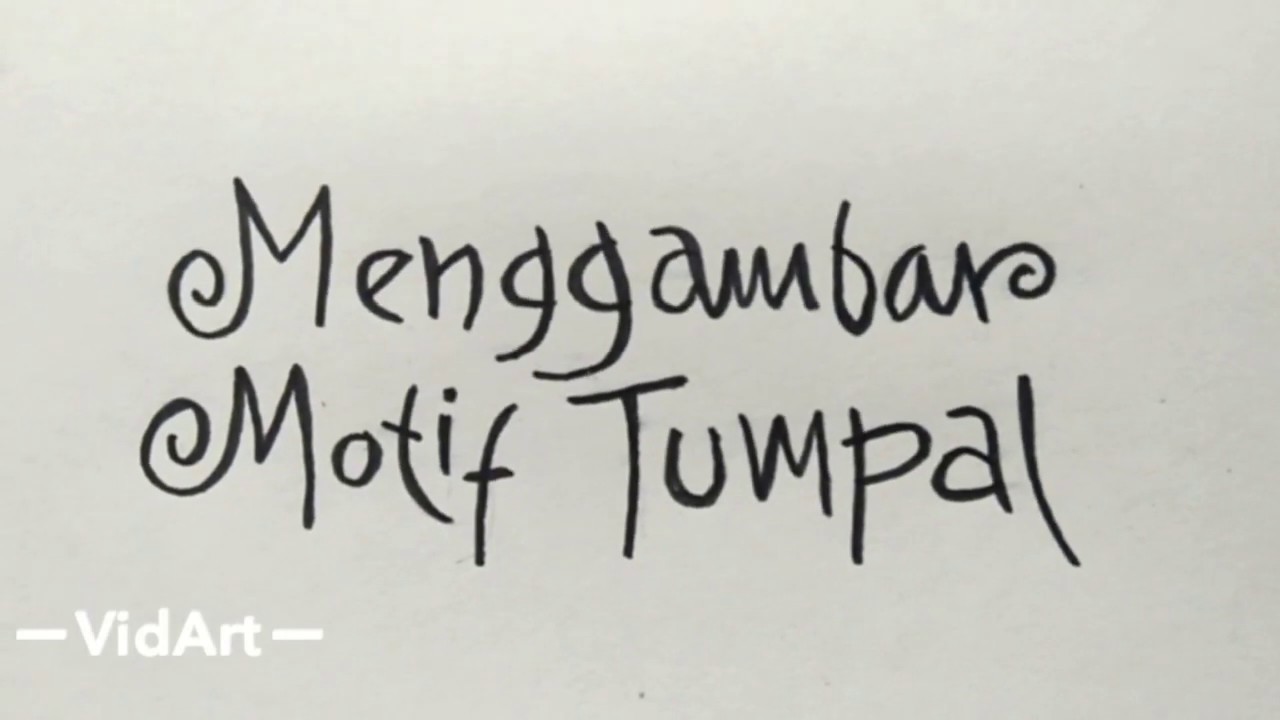 Menggambar
Motif Tumpal
—VidArt—